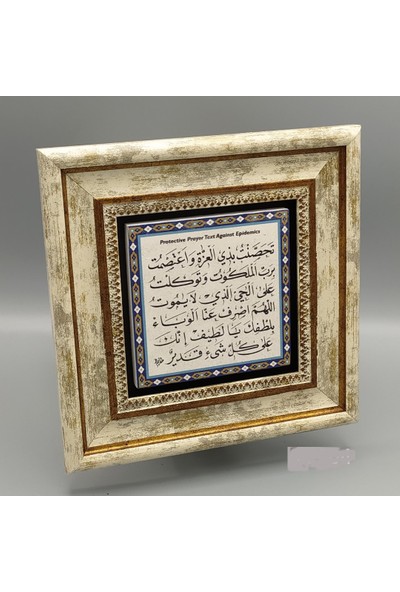 Protective Prayer Text Against Epidemics
تَحَصَّنْتُ بِذِي الْعِزَّةِ وَاعْتَصَمْتُ
بِرَبِّ الْمَلَكُوتِ وَتَوَكَّلْتُ
عَلَى الْحَيِّ الَّذِي لَا يَمُوتُ
اَللّٰهُمَّ اصْرِفْ عَنَّا الْوَبَاءَ
بِلُطْفِكَ يَا لَطِيفُ إِنَّكَ
عَلَى كُلِّ شَيْءٍ قَدِيرٌ